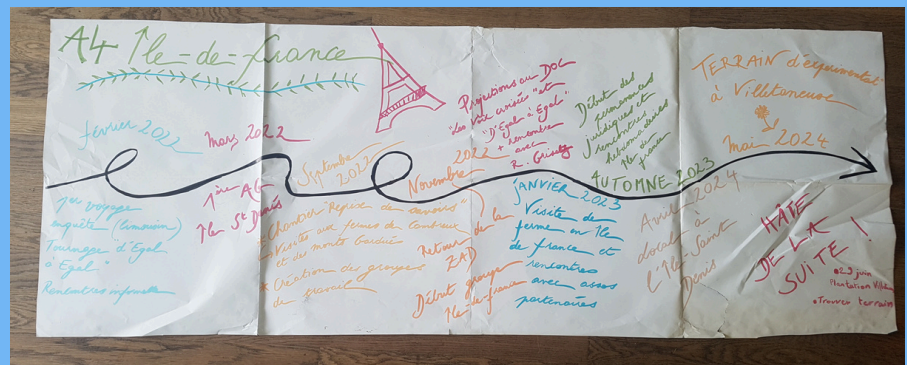 A4 Île-de-france
février 2022
1er voyage
enquête (Limousin)
Tournage d'Egal
à Egal
Rencontres informelles
Mars 2022
1ère AG
Île St Denis
Septembre
2022
* Chantier "Reprise de savoirs"
- Visites aux fermes de Combreux
et des monts Gardés
* Création des groupes
de travail
Novembre 2022
Retour de la
ZAD
Début groupe
Île-de-france
Projections au DOC
"Les voix croisées" et
"D'Egal à Egal"
+ rencontre
avec
R.
JANVIER 2023
Visite de
ferme en Île
de france et
rencontres
avec assos
partenaires
Début des
permanences
juridiques et
rencontres
hebdomadaires
Île de
france
AUTOMNE 2023
Avril 2024
local à
L'Île-Saint
Denis
TERRAIN d'éxperimentat°
à Villetaneuse
mai 2024
HÂTE
DE LA
SUITE !
29 juin
Plantation
Trouver terrain